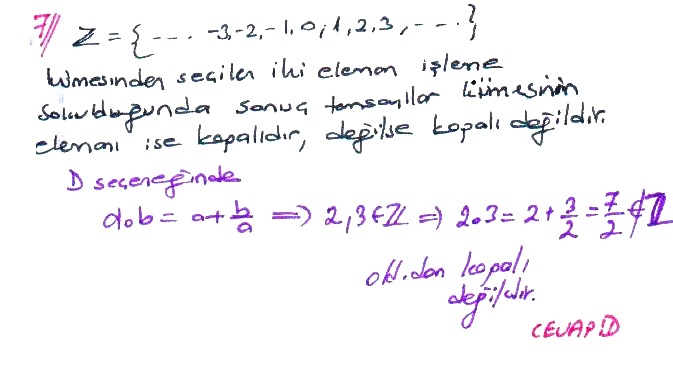 7// Z = {--- . -3,-2,-1,0,1,2,3,- -- .}
kümesinden seçilen iki eleman işleme
sokulduğunda sonuç tamsayılar kümesinin
elemanı ise kapalıdır, değilse kapalı değildir.
D seçeneğinde
a∘b = a+b/a ⇒ 2,3∈Z ⇒ 2∘3 = 2+3/2 = 7/2 ∉ Z
old.dan kapalı
değildir.
CEVAP D